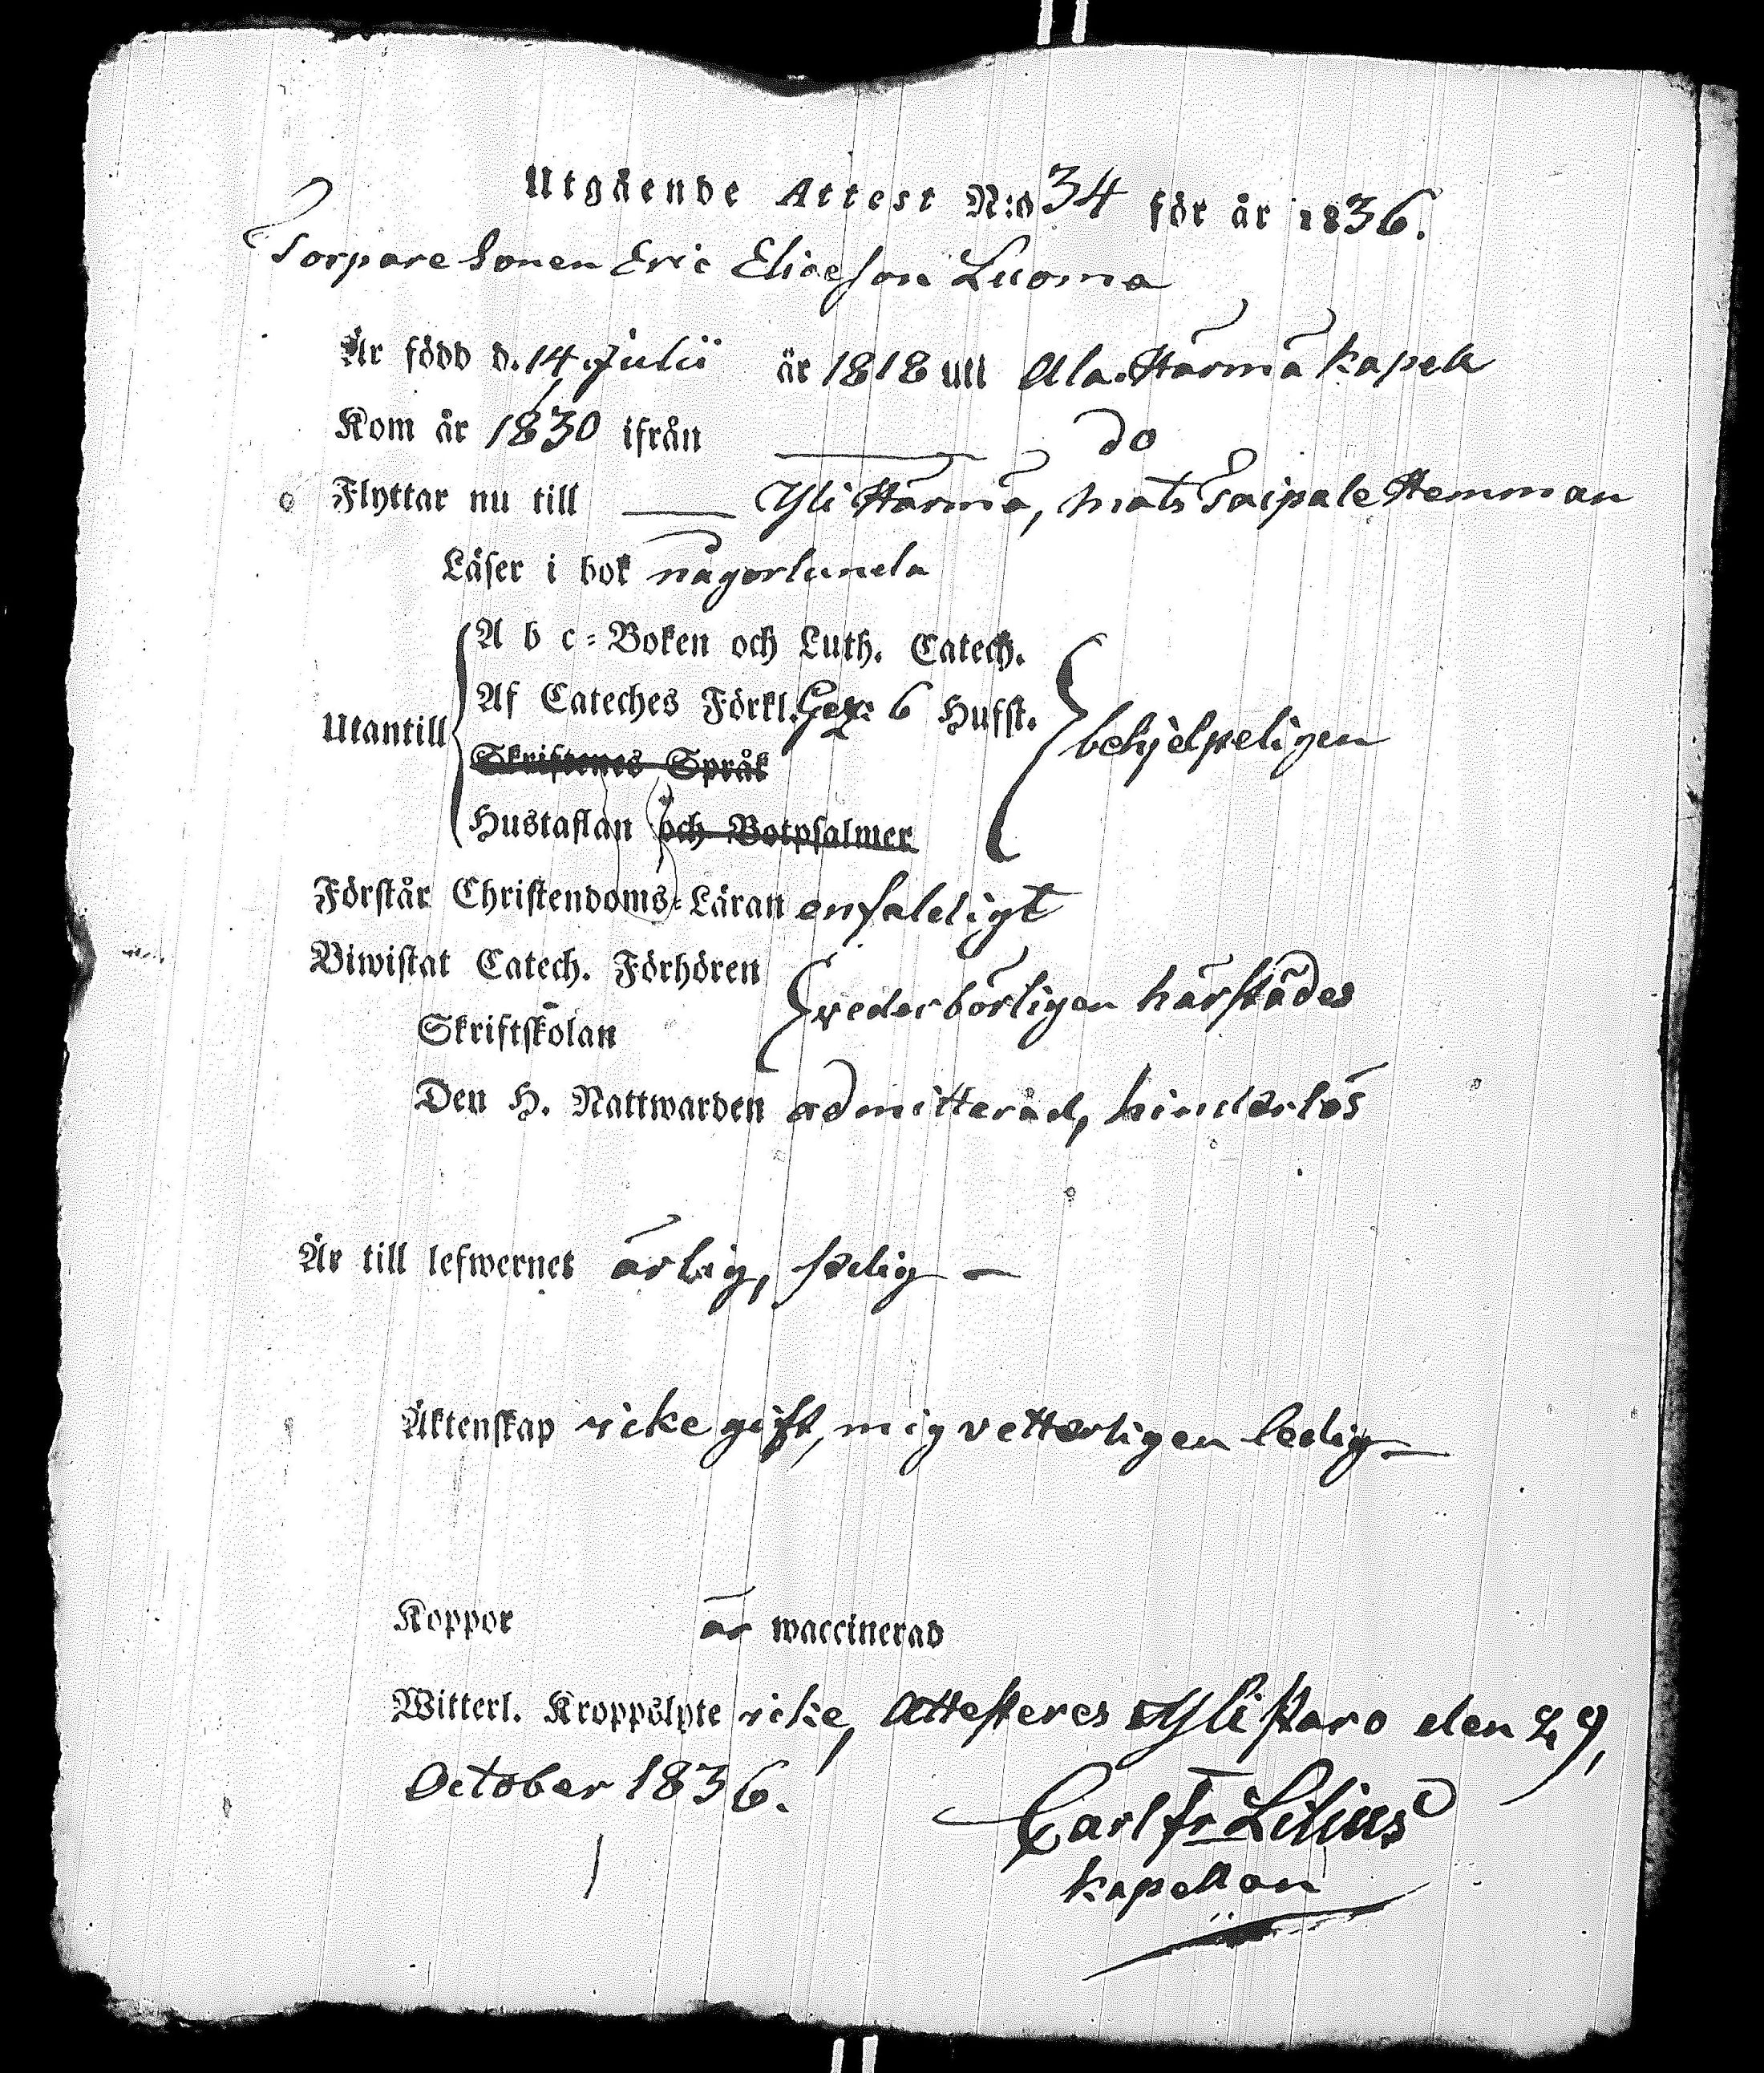 Utgående Attest N:o 34 för år 1836.
Torpare Sonen Eric Eliaeson Luoma
Är född d. 14 Julii år 1818 uti Ala Härmä kapell
Kom år 1830 ifrån do
Flyttar nu till Yli Härmä, Mats Taipale Hemman
Läser i bok någorlunda
A b c-Boken och Luth. Catech.
Af Cateches Förkl. 6 Hufst.
Utantill behjelpeligen
Skriftenes Språk
Hustaflan och Botpsalmer
Förstår Christendoms-Läran enfaldigt
Biwistat Catech. Förhören
vederbörligen härstädes
Skriftskolan
Den H. Nattwarden admitterad, hinderlös
Är till lefwernet ärlig, sedig —
Äktenskap icke gift, mig vetterligen ledig —
Koppor är waccinerad
Witterl. Kroppslyte icke, Attesteres Ylistaro den 29,
October 1836.
Carl Fr Lilius
Kapellan